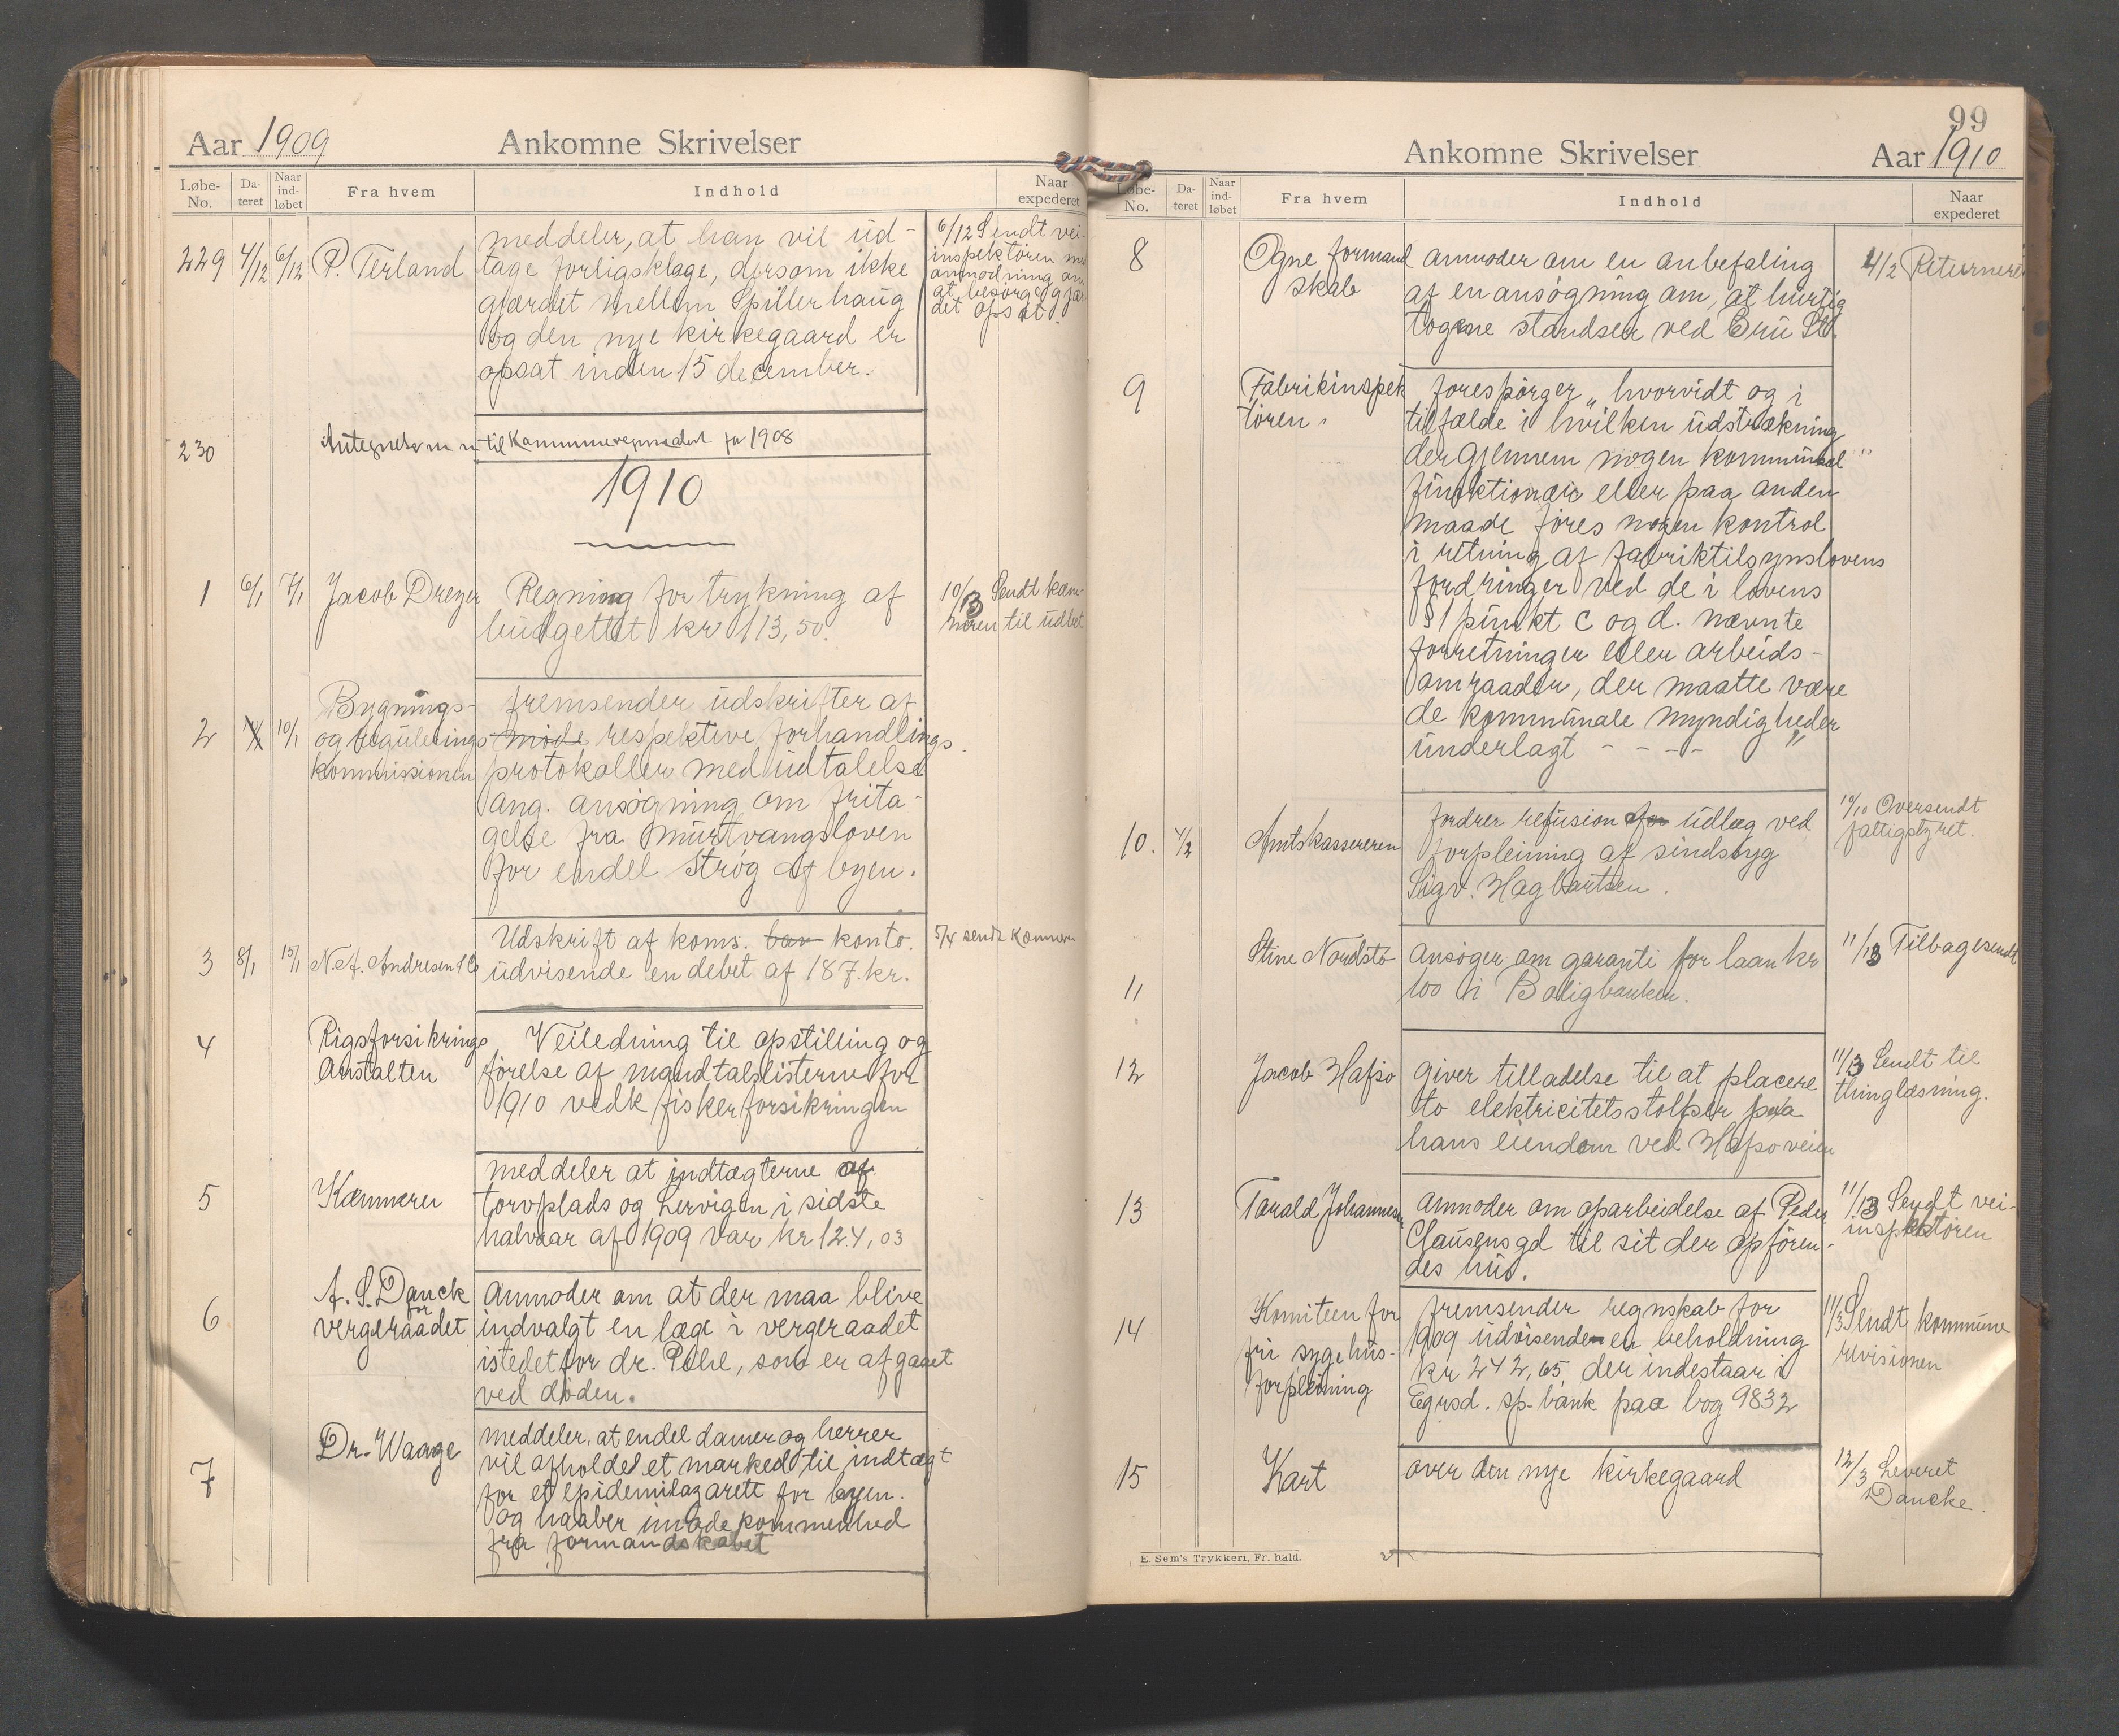 Aar 1909
Ankomne Skrivelser
Løbe-No.
Da-teret
Naar ind-løbet
Fra hvem
Indhold
Naar expederet
229 4/12 6/12 P. Terland
meddeler, at han vil ud-
tage forligsklage, dersom ikke
gjærdet mellem Spillerhaug
og den nye kirkegaard er
opsat inden 15 december.
6/12 Sendt vei-
inspektören
anmodning om
at besörge gjær
det opsat.
230
til for 1908
1910
1 6/1 7/1 Jacob Dreyer
Regning for trykning af
budgettet kr 113,50.
10/13 Sendt kæm-
neren til udbet
2 10/1
Bygnings-
og regulerings
kommissionen
fremsender udskrifter af
möde respektive forhandlings
protokoller med udtalelse
ang. ansögning om frita-
gelse fra murtvangsloven
for endel strög af byen.
3 8/1 15/1 N. A. Andresen & Co
Udskrift af koms. konto.
udvisende en debet af 187. kr.
5/4 sendt Kæmneren
4
Rigsforsikrings
Anstalten
Veiledning til opstilling og
förelse af mandtalslisterne for
1910 vedk fiskerforsikringen
5
Kæmneren
meddeler at indtægterne af
torvplads og Lervigen i sidste
halvaar af 1909 var kr 124,03
6
A. S. Danck
for
vergeraadet
anmoder om at der maa blive
indvalgt en læge i vergeraadet
istedetfor dr. , som er afgaaet
ved döden.
7
Dr. Waage
meddeler, at endel damer og herrer
vil afholde et marked til indtægt
for et epidemilazarett for byen.
og haaber imödekommenhed
fra formandskabet
99
Ankomne Skrivelser
Aar 1910
Løbe-No.
Da-teret
Naar ind-løbet
Fra hvem
Indhold
Naar expederet
8
Ogne formand
skab
anmoder om en anbefaling
af en ansögning om, at hurtig
togene standser ved Bru St.
4/2 Returneret
9
Fabrikinspek
tören.
forespörger „hvorvidt og i
tilfælde i hvilken udstrækning
der gjennem nogen kommunal
funktionær eller paa anden
maade föres nogen kontrol
i retning af fabriktilsynslovens
fordringer ved de i lovens
§ 1 punkt c og d. nævnte
forretninger eller arbeids-
omraader, der maatte være
de kommunale myndigheder
underlagt - - - - "
10. 4/2 Amtskassereren
fordrer refusion for udlæg ved
forpleining af sindssyg
Sigv. Hagbartsen.
10/10 Oversendt
fattigstyret.
11
Stine Nordstö
ansöger om garanti for laan kr
100 i Boligbanken.
11/13 Tilbagesendt
12
Jacob Hafsö
giver tilladelse til at placere
to elektricitetsstolper paa
hans eiendom ved Hafsöveien
11/13 Sendt til
thinglæsning.
13
Tarald Johannesen
anmoder om oparbeidelse af Peder
Clausens gd til sit der opfören-
des hus.
11/13 Sendt vei-
inspektören
14
Komiteen for
fri sygehus-
forpleining
fremsender regnskab for
1909 udvisende en beholdning
kr 242,65, der indestaar i
Egrsd. sp.bank paa bog 9832
11/3 Sendt kommune
revisionen
15
Kart
over den nye kirkegaard
12/3 Leveret
Dancke.
E. Sem's Trykkeri, Fr. hald.